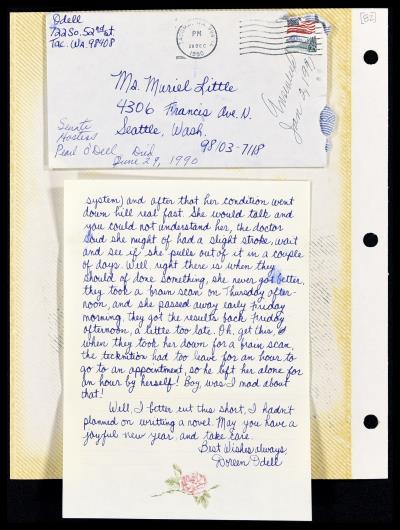 Odell
722 So. 52nd St.
Tac. Wa. 98408
PM
1990
[82]
Ms. Muriel Little
4306 Francis Ave. N.
Seattle, Wash.
98103-7118
Answered
Jan 3, 1991
Senate
Hostess
Pearl O'Dell Died
June 29, 1990
system) and after that her condition went
down hill real fast. She would talk and
you could not understand her, the doctor
said she might of had a slight stroke, wait
and see if she pulls out of it in a couple
of days. Well, right there is when they
should of done something, she never got better,
they took a brain scan on Thursday after-
noon, and she passed away early Friday
morning, they got the results back Friday
afternoon, a little too late. Oh, get this,
when they took her down for a brain scan,
the technition had too leave for an hour to
go to an appointment, so he left her alone for
an hour by herself! Boy, was I mad about
that!
Well, I better cut this short, I hadn't
planned on writting a novel. May you have a
joyful new year and take care.
Best Wishes always,
Doreen Odell